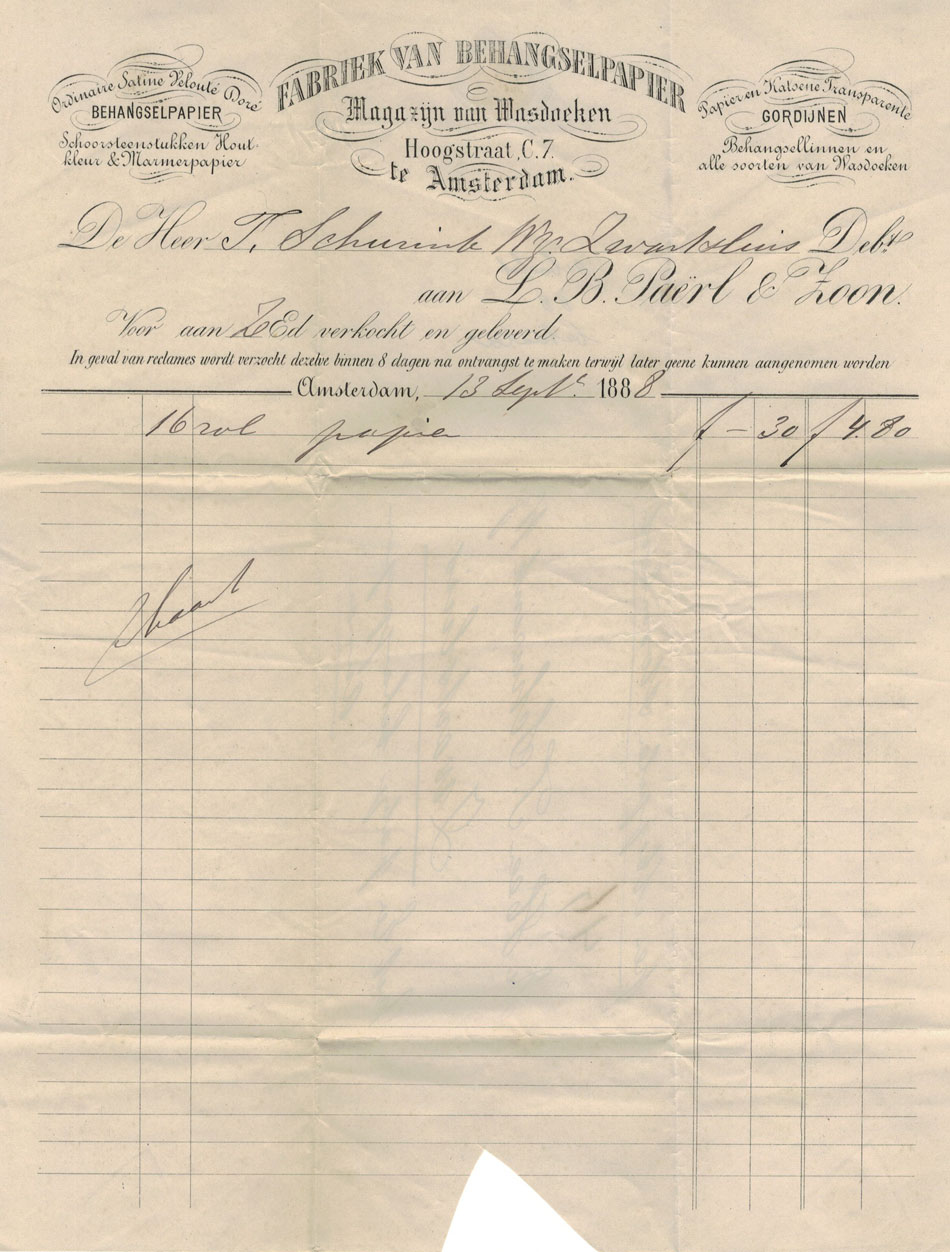 FABRIEK VAN BEHANGSELPAPIER
Magazijn van Wasdoeken
Hoogstraat, C. 7.
te Amsterdam.
Ordinaire Satine Velouté Doré
BEHANGSELPAPIER
Schoorsteenstukken Hout-
kleur & Marmerpapier
Papier en Katoene Transparente
GORDIJNEN
Behangsellinnen en
alle soorten van Wasdoeken
De Heer T. Schurink Wz. Zwartsluis Debt.
aan L. B. Paërl & Zoon.
Voor aan ZEd verkocht en geleverd.
In geval van reclames wordt verzocht dezelve binnen 8 dagen na ontvangst te maken terwijl later geene kunnen aangenomen worden
Amsterdam, 13 Sept. 1888
16 rol papier f – 30 f 4.80